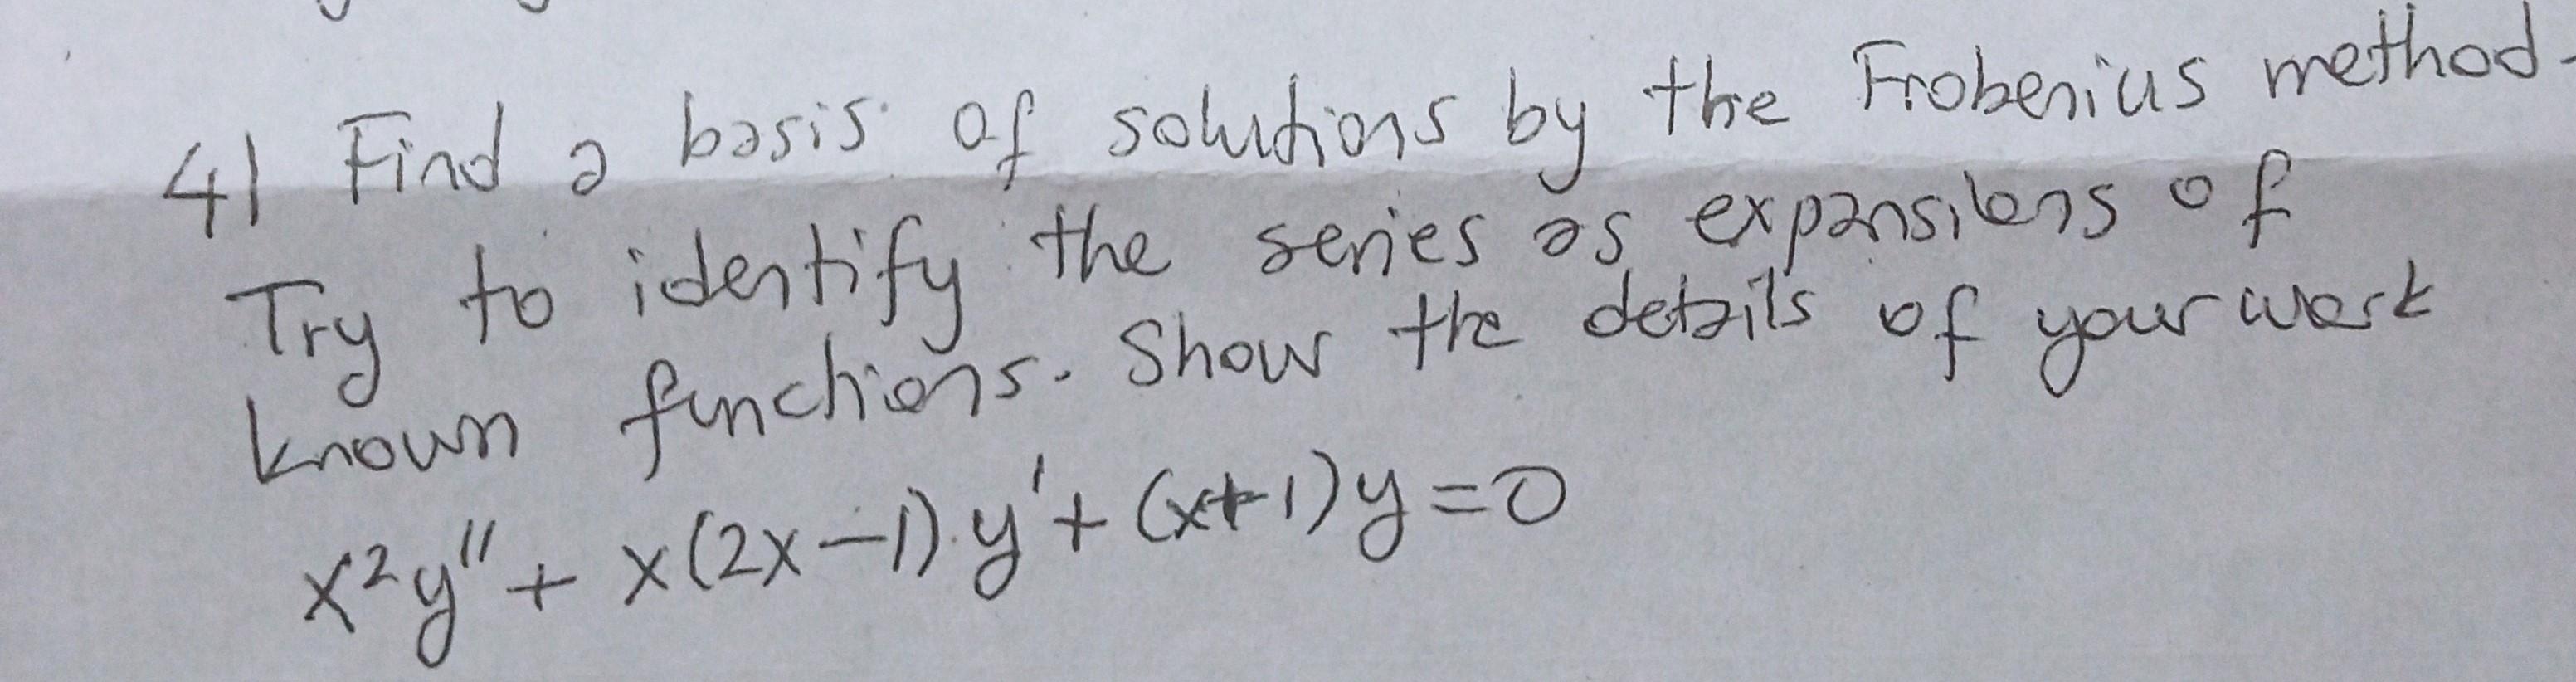 4) Find a basis of solutions by the Frobenius method.
Try to identify the series as expansions of
known functions. Show the details of your work
x²y'' + x(2x-1).y' + (x+1)y=0